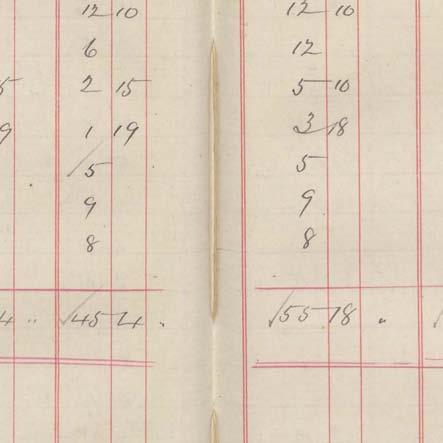 12 10
6
5 2 15
9 1 19
5
9
8
4 " 45 4 .
12 10
12
5 10
3 18
5
9
8
55 18 "